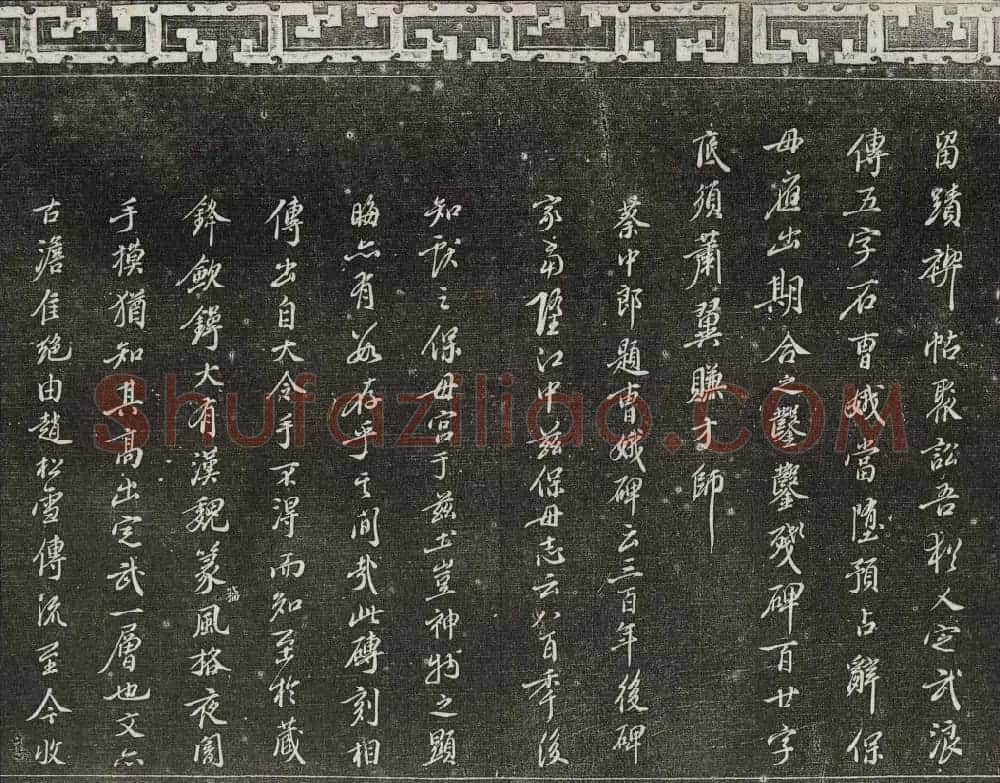 留蹟禊帖聚訟吾彬又定武浪
傳五字石曹娥當墮預占辭保
母應出期合之鑿鑿殘碑百廿字
底須蕭翼賺才師
蔡中郎題曹娥碑云三百年後碑
家當墮江中茲保母志云八百季後
知獻之保母宮于茲土豈神物之顯
晦亦有數存乎其間哉此磚刻相
傳出自大令手不得而知至於藏
鋒斂鍔大有漢魏篆風格夜闇
手摸猶知其高出定武一層也文亦
古澹隹絕由趙松雪傳流至今收
Shufaziliao.COM